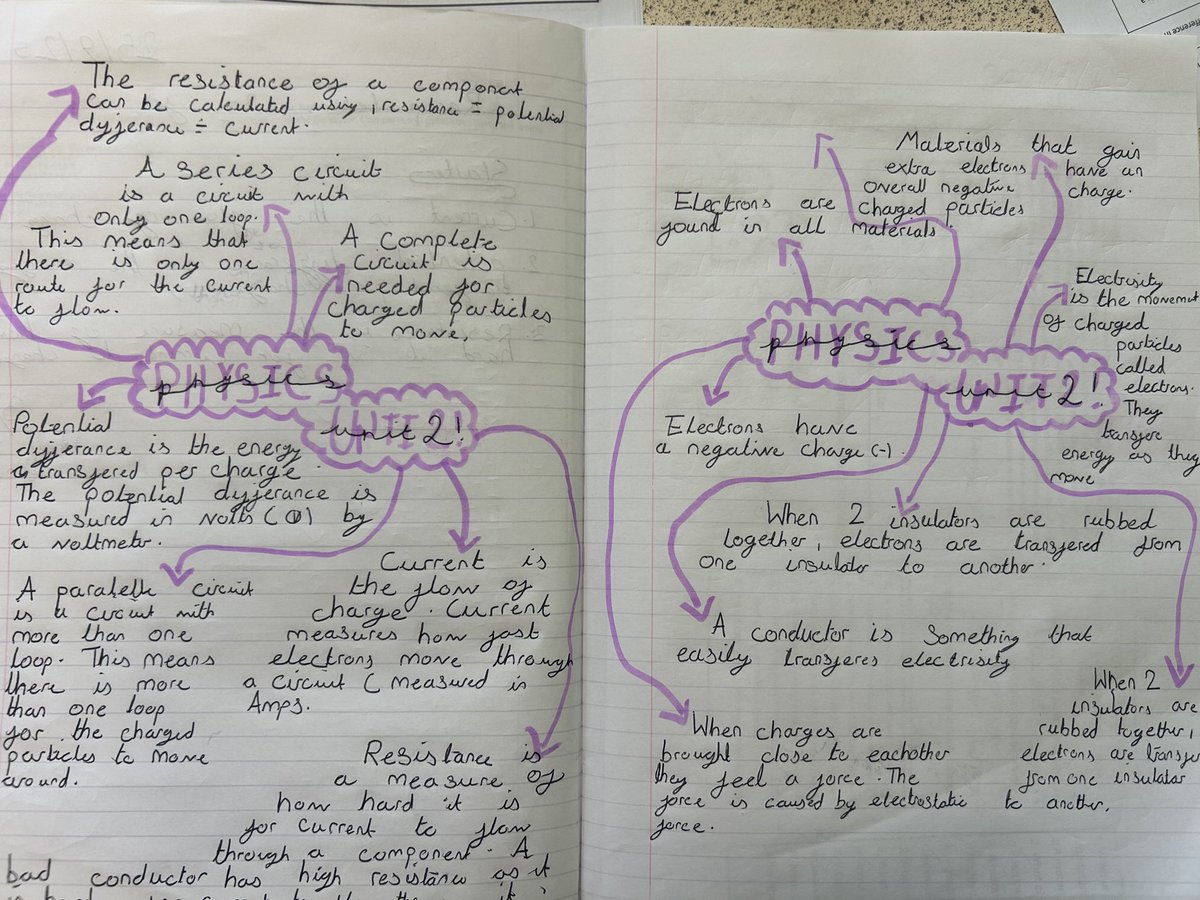 The resistance of a component
can be calculated using, resistance = potential
dyfferance ÷ current.
A series circuit
is a circuit with
only one loop.
This means that
there is only one
route for the current
to flow.
A complete
circuit is
needed for
charged particles
to move,
PHYSICS
physics
UNIT 2!
unit 2!
Potential
dyfferance is the energy
transfered per charge.
The potential dyfferance is
measured in volts (V) by
a voltmeter.
A paralelle circuit
is a circuit with
more than one
loop. This means
there is more
than one loop
for the charged
particles to move
around.
Current is
the flow of
charge. Current
measures how fast
electrons move through
a circuit (measured in
Amps.
Resistance is
a measure of
how hard it is
for current to flow
through a component. A
bad conductor has high resistance as it
Materials that gain
extra electrons have an
overall negative charge.
Electrons are charged particles
found in all materials.
Electrisity
is the movement
of charged
particles
called
electron.
They
transfere
energy as they
move
PHYSICS
physics
UNIT 2!
unit 2!
Electrons have
a negative charge (-).
When 2 insulators are rubbed
together, electrons are transfered from
one insulator to another.
A conductor is something that
easily transferes electrisity
When charges are
brought close to eachother
they feel a force. The
force is caused by electrostatic
force.
When 2
insulators are
rubbed together,
electrons are transfe
from one insulator
to another.